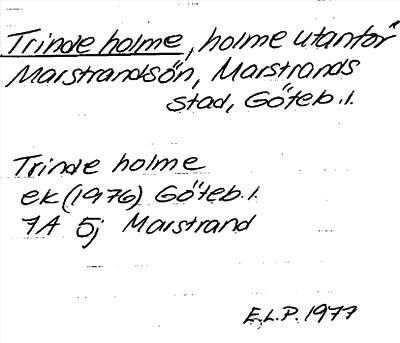 Trinde holme, holme utanför
Marstrandsön, Marstrands
stad, Göteb. l.
Trinde holme
ek (1976) Göteb. l.
7A 5j Marstrand
E.L.P. 1977